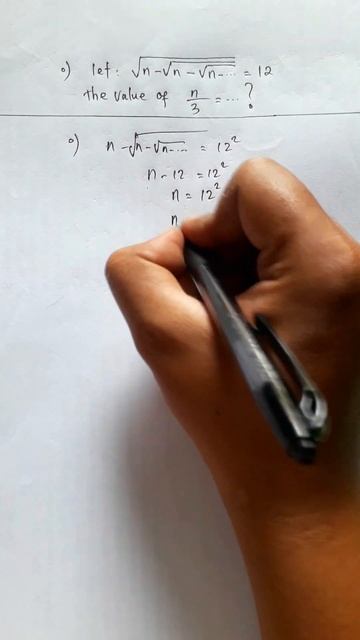 o) let: √n-√n-√n-... = 12
the value of n/3 = ... ?
o) n-√n-√n-... = 12²
n-12 = 12²
n = 12²
n